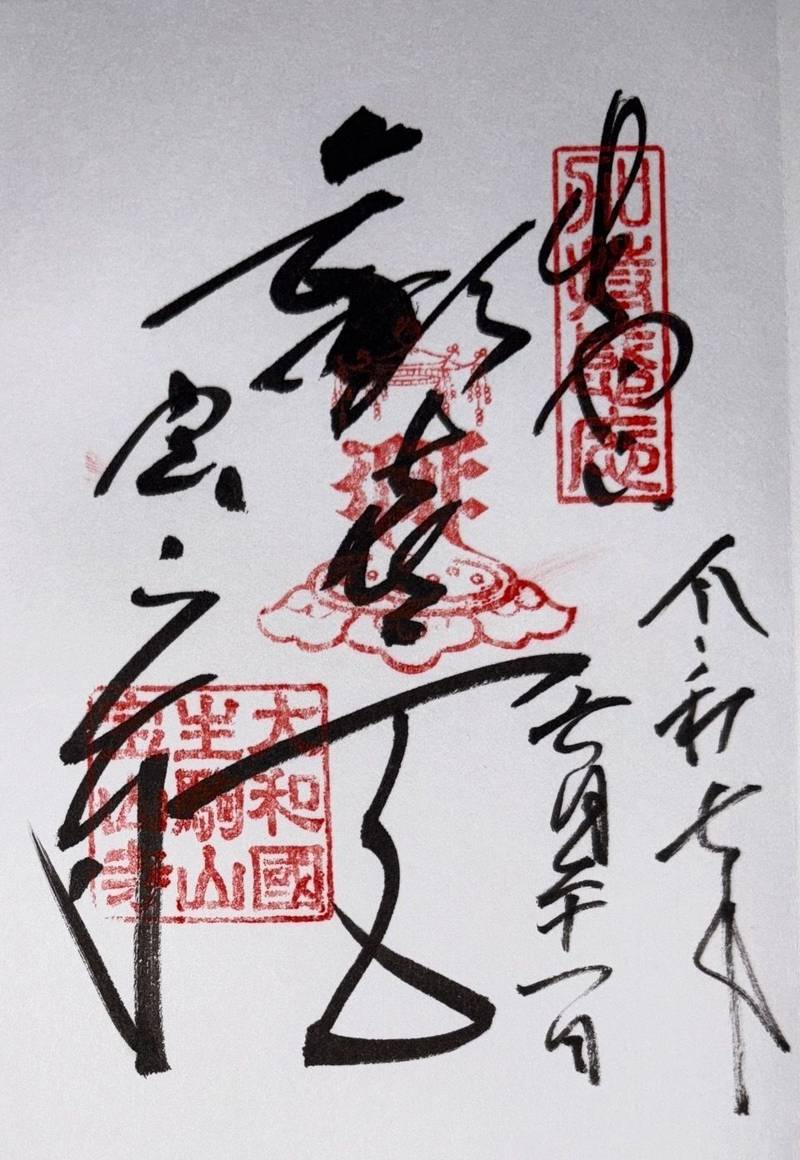 令和七年
七月二十一日
歓喜天
宝山寺
大和國
生駒山
寶山寺